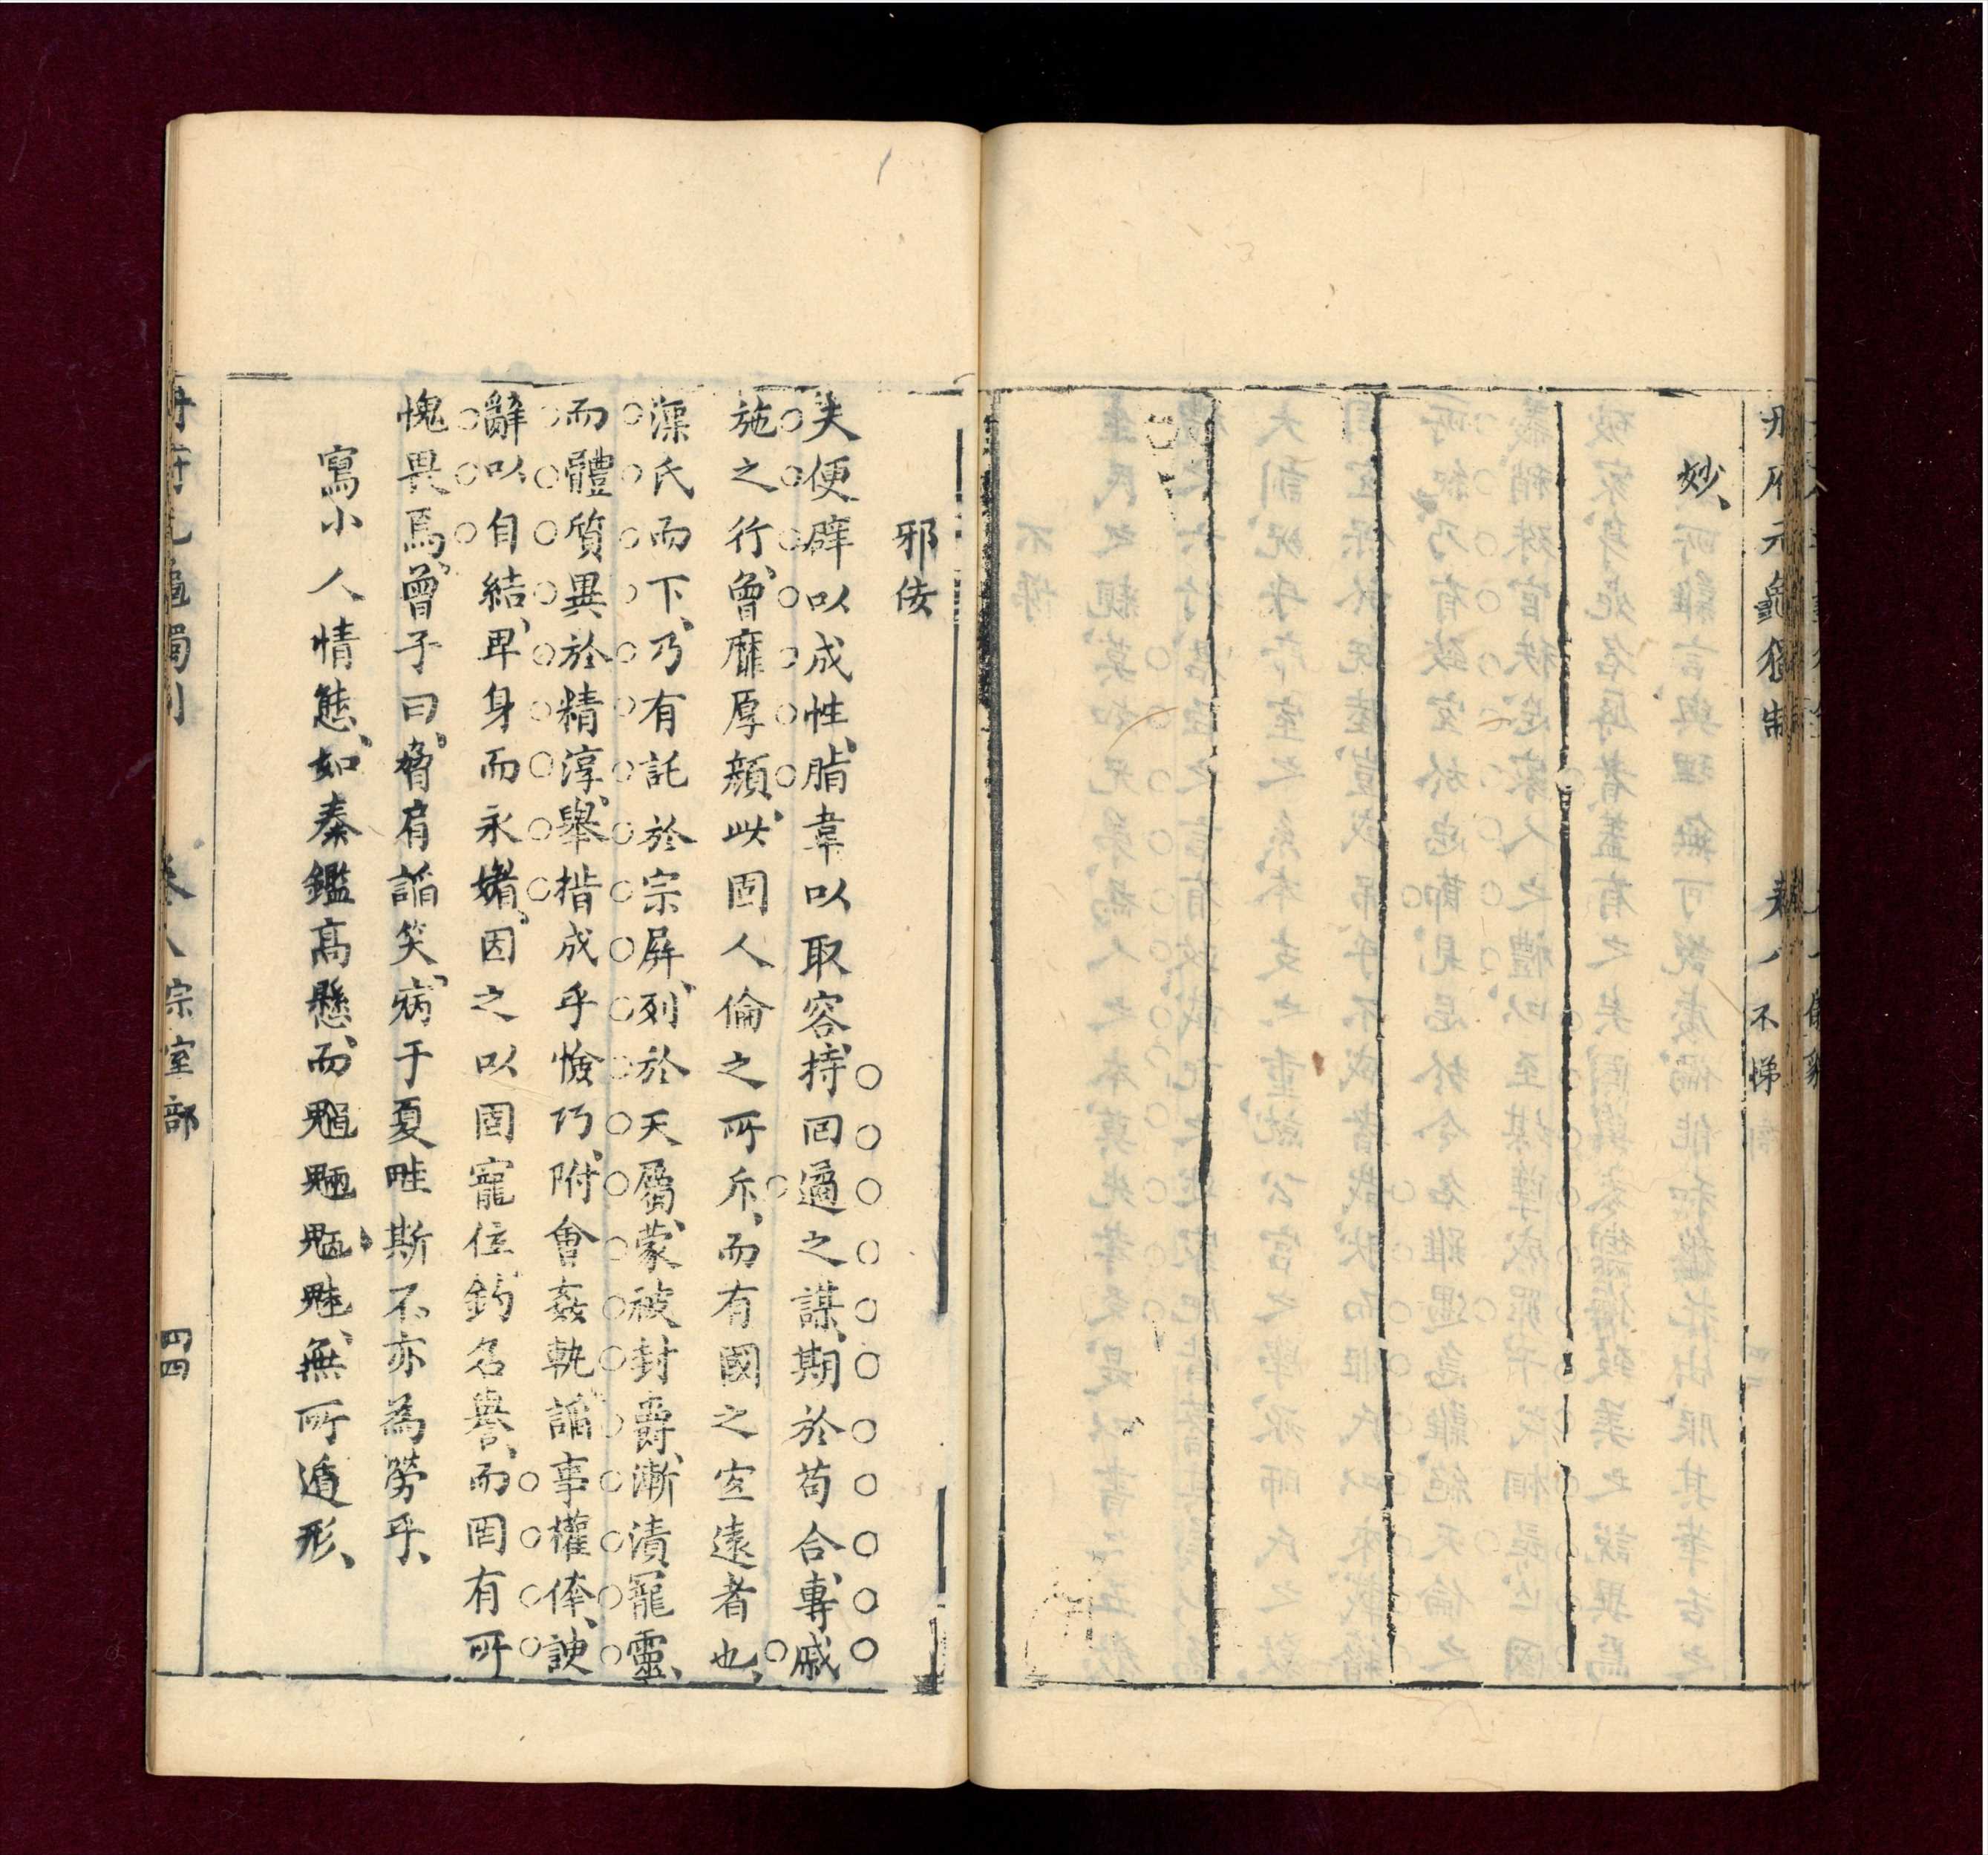 冊府元龜獨制 卷八 不悌
妙、
邪佞
夫便辟以成性、脂韋以取容、持回遹之謀、期於苟合、專戚
施之行、曾靡厚顏、此固人倫之所斥、而有國之宜遠者也、
澡氏而下、乃有託於宗屏、列於天屬、蒙被封爵、漸漬寵靈、
而體質異於精淳、舉措成乎憸巧、附會姦軌、諂事權倖、諛
辭以自結、卑身而永媚、因之以固寵位、釣名譽、而罔有所
愧畏焉、曾子曰、脅肩諂笑、病于夏畦、斯不亦為勞乎、
寫小人情態、如秦鑑高懸、而魍魎魑魅、無所遁形、
冊府元龜獨制 卷八 宗室部 四四